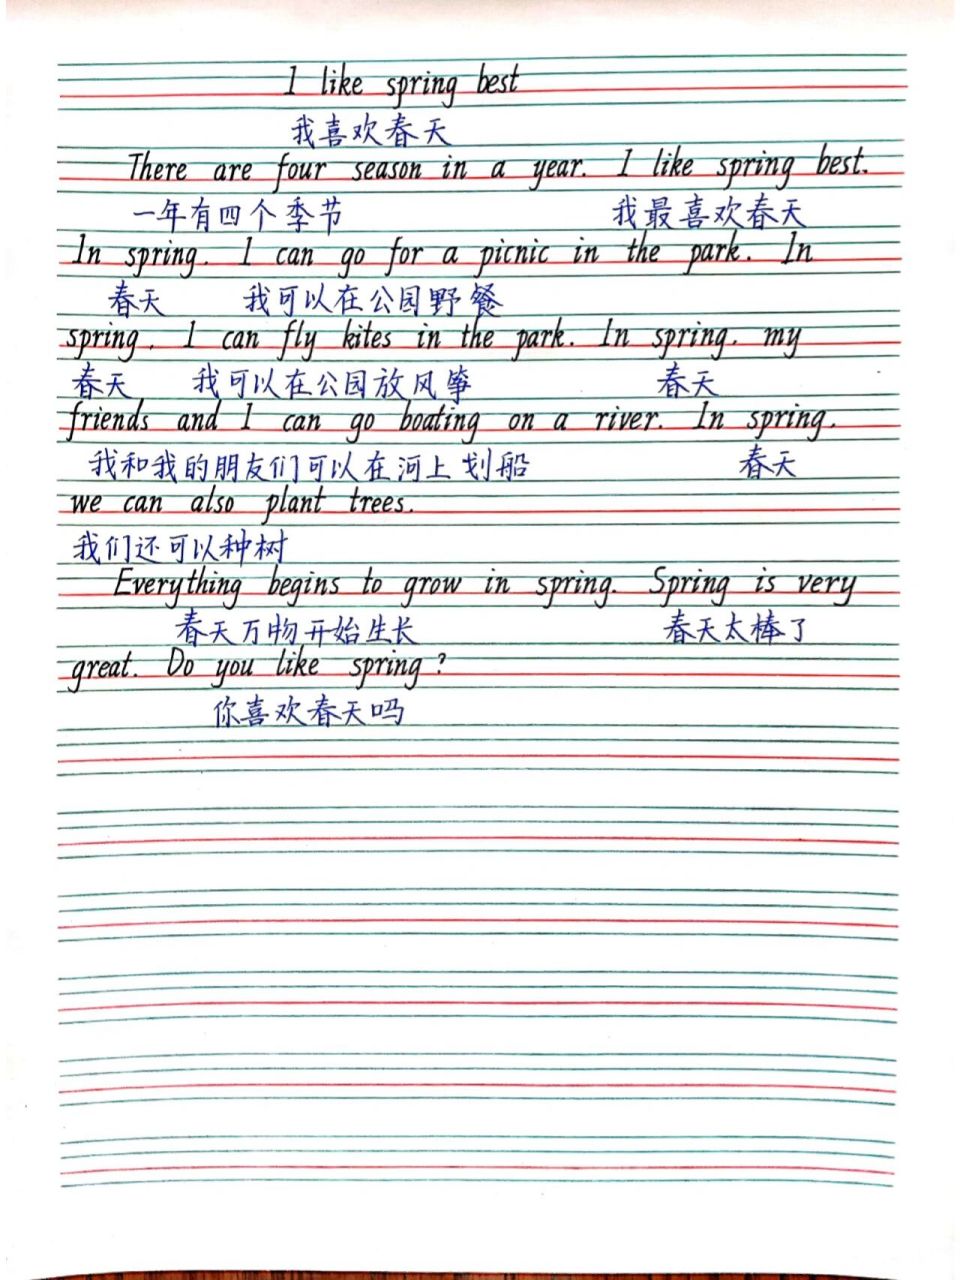 I like spring best
我喜欢春天
There are four season in a year. I like spring best.
一年有四个季节 我最喜欢春天
In spring. I can go for a picnic in the park. In
春天 我可以在公园野餐
spring. I can fly kites in the park. In spring. my
春天 我可以在公园放风筝 春天
friends and I can go boating on a river. In spring.
我和我的朋友们可以在河上划船 春天
we can also plant trees.
我们还可以种树
Everything begins to grow in spring. Spring is very
春天万物开始生长 春天太棒了
great. Do you like spring?
你喜欢春天吗